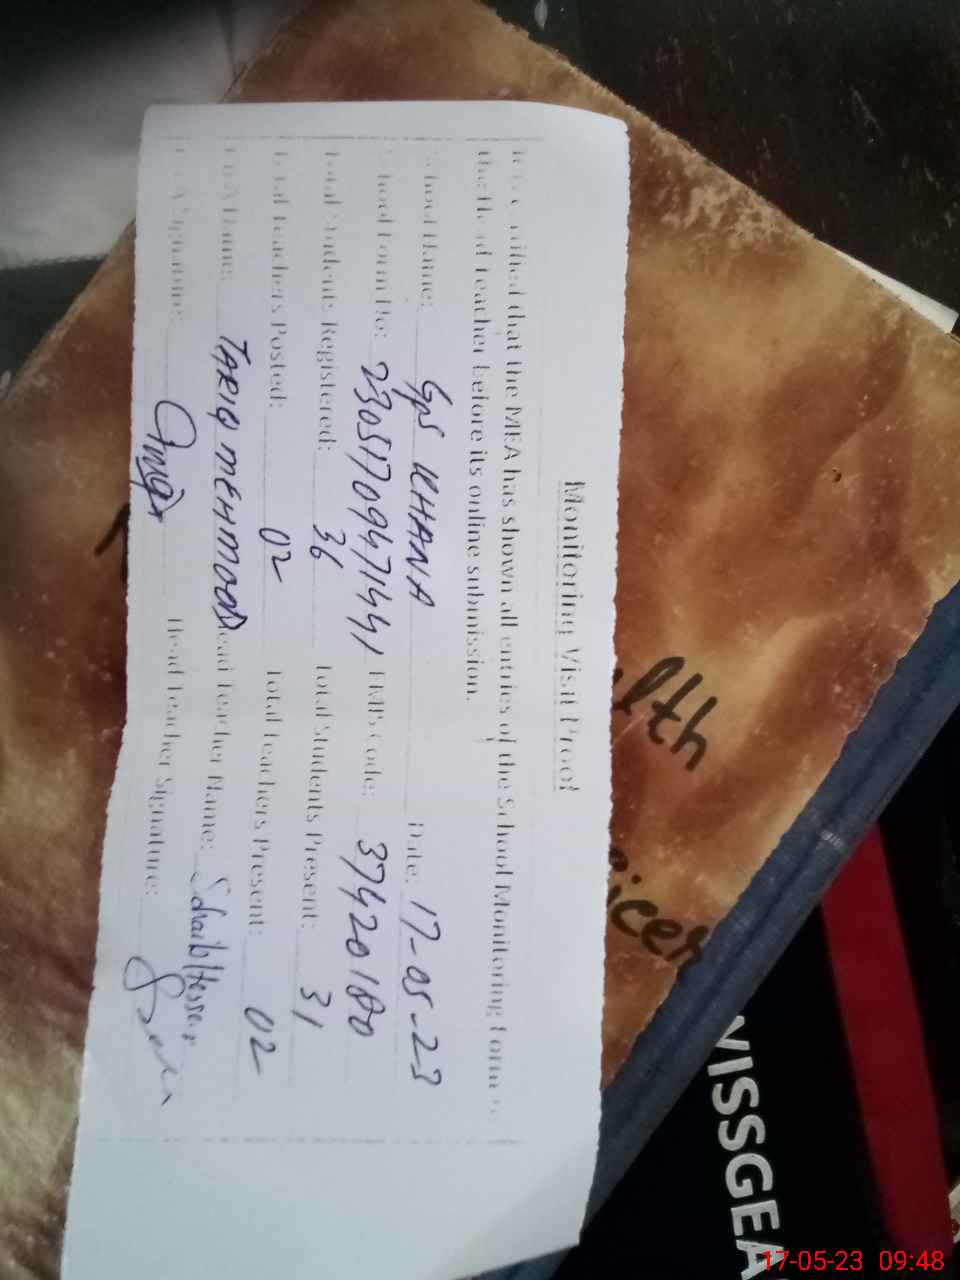 Monitoring Visit Proof
that the MEA has shown all entries of the School Monitoring Form
the Head Teacher before its online submission.
School Name: GPS KHANA Date: 17-05-23
School Form No: EMIS Code: 37420180
Total Students Registered: 36 Total Students Present: 31
Total Teachers Posted: 02 Total Teachers Present: 02
MEA Name: TARIQ MEHMOOD Head Teacher Name:
MEA Signature: Head Teacher Signature:
lth
icer
VISSGEA
17-05-23 09:48